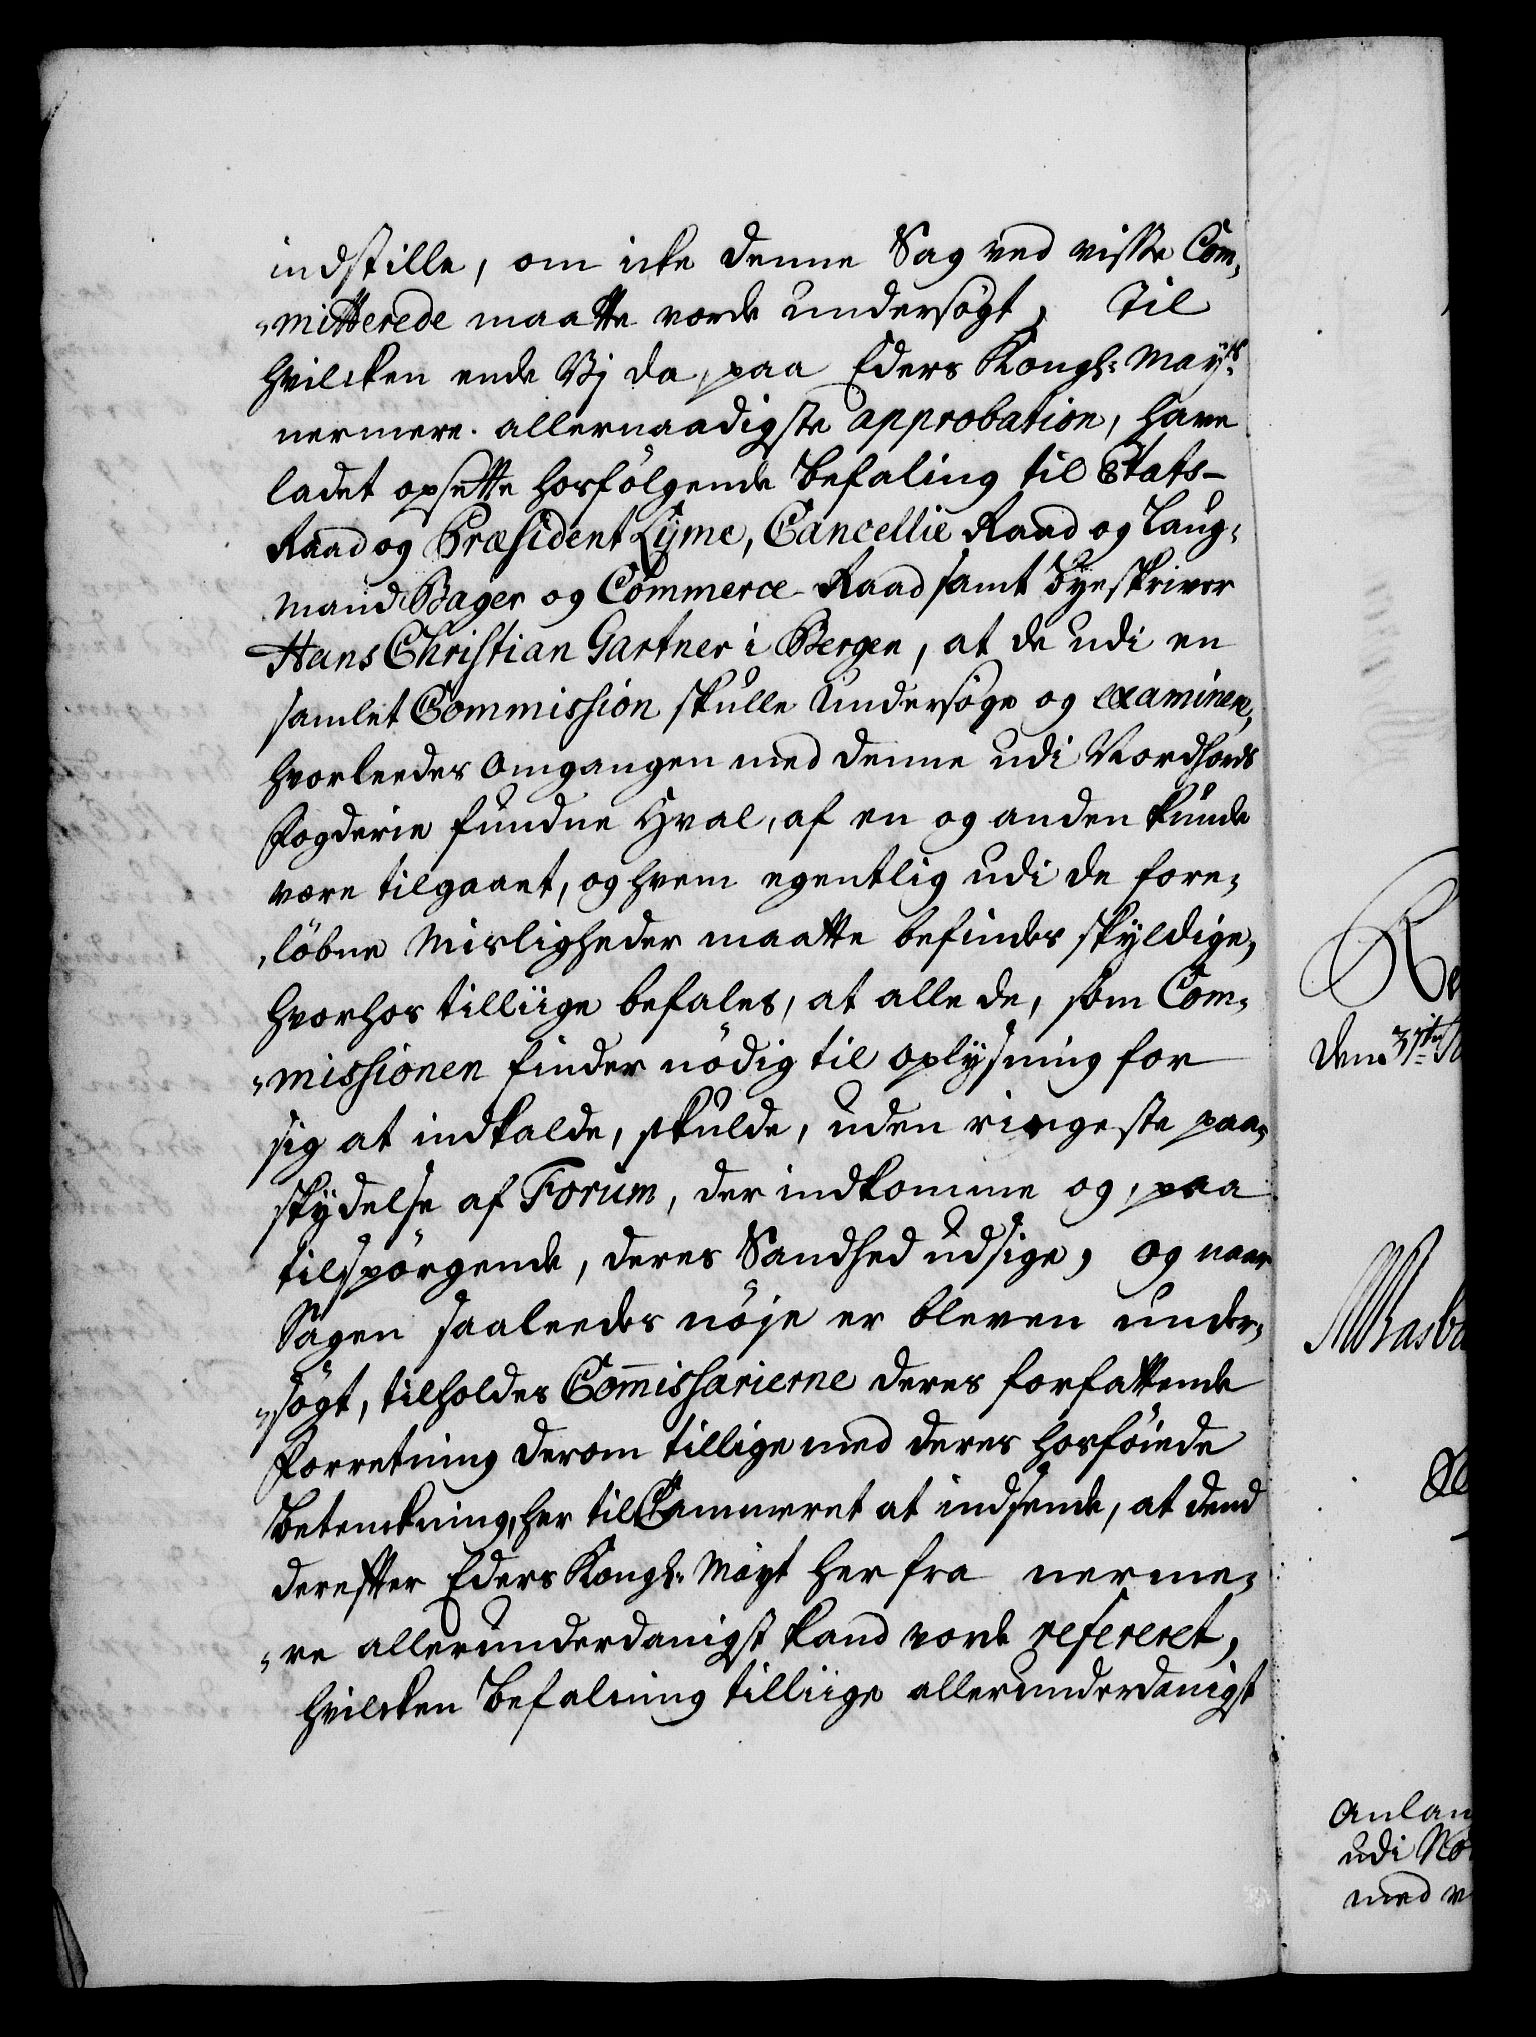 indstille, om icke denne Sag ved visse Com„
„mitterede maatte vorde undersögt, Til
hvilcken ende Vj da, paa Eders Kongl: May:ts
nermere allernaadigste approbation, have
ladet opsette hosfölgende befaling til Etats-
Raad og Præsident Lÿme, Cancellie Raad og Laug„
mand Bager og Commerce-Raad samt Byeskriver
Hans Christian Gartner i Bergen, at de udi en
samlet Commission skulle undersöge og examinere,
hvorleedes omgangen med denne udi Nordhords
Fogderie fundne Hval, af en og anden kunde
være tilgaaet, og hvem egentlig udi de fore„
„löbne Misligheder maatte befindes skyldige,
hvorhos tilliige befales, at alle de, som Com„
„missionen finder nödig til oplysning for
sig at indkalde, skulde, uden ringeste paa„
skydelse af Forum, der indkomme og, paa
tilspörgende, deres Sandhed udsige, og naar
Sagen saaleedes nöje er bleven under„
„sögt, tilholdes Com̄issarierne deres forfattende
Forretning derom tillige med deres hosföiede
betenckning, her til Cammeret at indsende, at dend
derefter Eders Kongl: Mayt her fra nerme„
„re allerunderdanigst kand vorde refereret,
hvilcken befaling tilliige allerunderdanigst
Re
den 31te
Anlan
udi No
med v